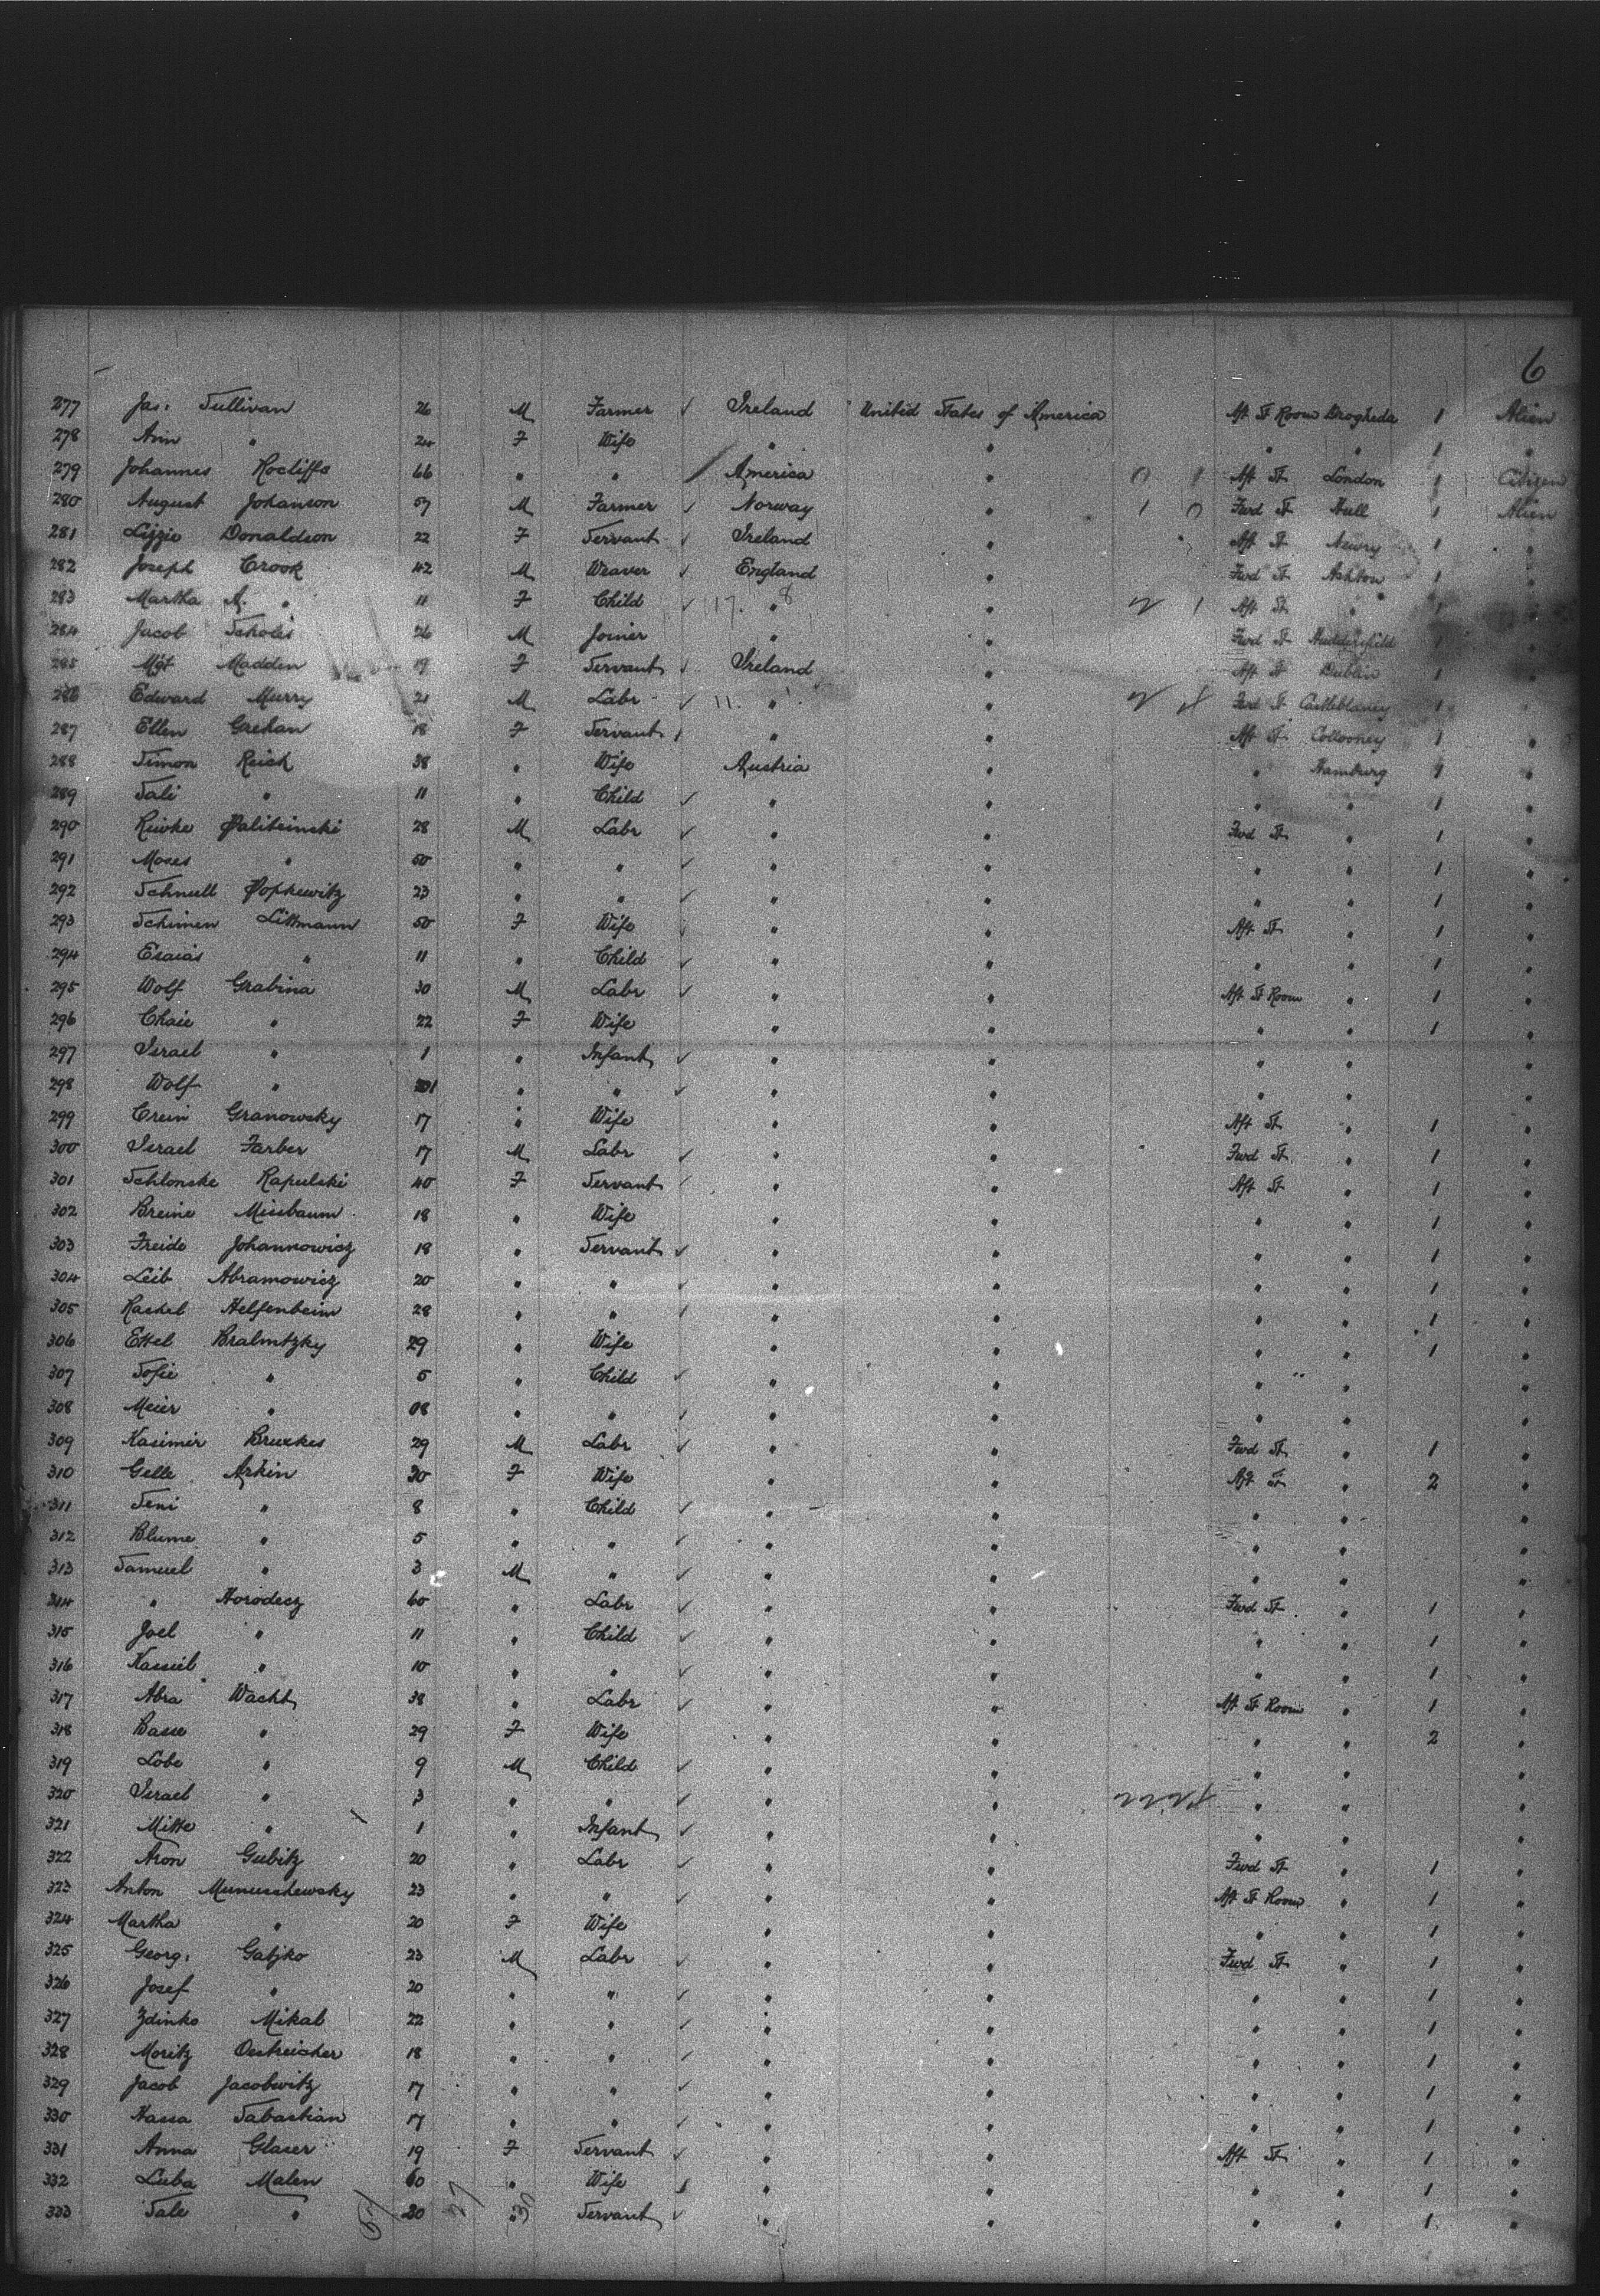 6
277 Jas. Sullivan 26 M Farmer ✓ Ireland United States of America Aft St Room Drogheda 1 Alien
278 Ann " 24 F Wife " " " " 1 "
279 Johannes Rocliffe 66 " " America " 0 1 Aft St London 1 Citizen
280 August Johanson 57 M Farmer ✓ Norway " 1 0 Fwd St Hull 1 Alien
281 Lizzie Donaldson 22 F Servant ✓ Ireland " Aft St Newry 1 "
282 Joseph Crook 42 M Weaver ✓ England " Fwd St Ashton 1 "
283 Martha A. " 11 F Child ✓ " " 2 1 Aft St " 1 "
284 Jacob Scholes 26 M Joiner " " Fwd St Huddersfield 1 "
285 Mgt Madden 19 F Servant ✓ Ireland " Aft St Dublin 1 "
286 Edward Murry 21 M Labr ✓ 11. " " Fwd St Castleblaney 1 "
287 Ellen Grehan 18 F Servant " " Aft St Collooney 1 "
288 Simon Reich 38 " Wife Austria " " Hamburg 1 "
289 Sali " 11 " Child ✓ " " " " 1 "
290 Riwke Politcinski 28 M Labr ✓ " " Fwd St " 1 "
291 Moses " 50 " " ✓ " " " " 1 "
292 Schmull Popkewitz 23 " " ✓ " " " " 1 "
293 Schimen Littmann 50 F Wife " " Aft St " 1 "
294 Esaias " 11 " Child ✓ " " " " 1 "
295 Wolf Grabina 30 M Labr ✓ " " Aft St Room " 1 "
296 Chaie " 22 F Wife " " " " 1 "
297 Israel " 1 " Infant ✓ " " " " "
298 Wolf " " " ✓ " " " " "
299 Crein Granowsky 17 " Wife " " Aft St " 1 "
300 Israel Farber 17 M Labr ✓ " " Fwd St " 1 "
301 Schlonske Rapulski 40 F Servant ✓ " " Aft St " 1 "
302 Breine Missbaum 18 " Wife " " " " 1 "
303 Freide Johannowicz 18 " Servant ✓ " " " " 1 "
304 Leib Abramowicz 20 " " ✓ " " " " 1 "
305 Rachel Helfenbeim 28 " " ✓ " " " " 1 "
306 Ettel Bralmtzky 29 " Wife " " " " 1 "
307 Sofie " 5 " Child ✓ " " " " "
308 Meier " 08 " " ✓ " " " " "
309 Kasimir Bruxkes 29 M Labr ✓ " " Fwd St " 1 "
310 Gelle Arkin 30 F Wife " " Aft St " 2 "
311 Seni " 8 " Child ✓ " " " " "
312 Blume " 5 " " ✓ " " " " "
313 Samuel " 3 M " ✓ " " " " "
314 " Horodecz 60 " Labr ✓ " " Fwd St " 1 "
315 Joel " 11 " Child ✓ " " " " 1 "
316 Kassiel " 10 " " ✓ " " " " 1 "
317 Abra Wacht 38 " Labr ✓ " " Aft St Room " 1 "
318 Basse " 29 F Wife " " " " 2 "
319 Lobe " 9 M Child ✓ " " " " "
320 Israel " 3 " " ✓ " " " " "
321 Mitte " 1 " Infant ✓ " " " " "
322 Aron Gubitz 20 " Labr ✓ " " Fwd St " 1 "
323 Anton Munuschewsky 23 " " ✓ " " Aft St Room " 1 "
324 Martha " 20 F Wife " " " " 1 "
325 Georg. Gatjko 23 M Labr ✓ " " Fwd St " 1 "
326 Josef " 20 " " ✓ " " " " 1 "
327 Zdinko Mikal 22 " " ✓ " " " " 1 "
328 Moritz Oestreicher 18 " " ✓ " " " " 1 "
329 Jacob Jacobwitz 17 " " ✓ " " " " 1 "
330 Hassa Sabastian 17 " " ✓ " " " " 1 "
331 Anna Glaser 19 F Servant ✓ " " Aft St " 1 "
332 Luba Malen 60 " Wife " " " " 1 "
333 Sale " 20 " Servant ✓ " " " " 1 "